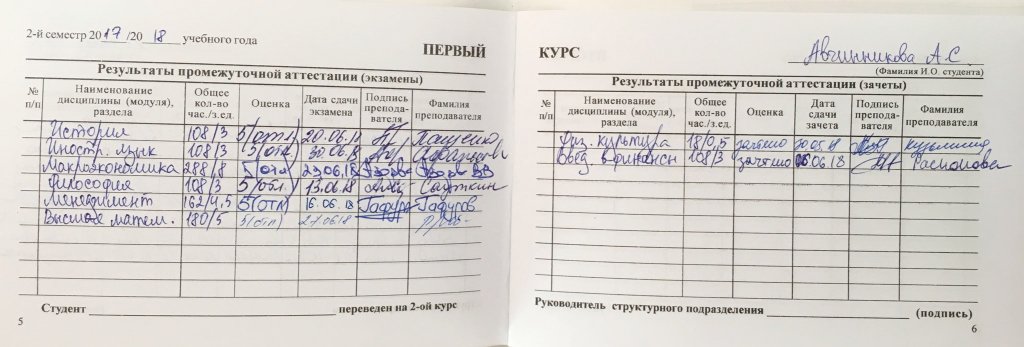 2-й семестр 2017/2018 учебного года
ПЕРВЫЙ
Результаты промежуточной аттестации (экзамены)
№ п/п Наименование дисциплины (модуля), раздела Общее кол-во час./з.ед. Оценка Дата сдачи экзамена Подпись препода-вателя Фамилия преподавателя
История 108/3 5/отл)
Иностр. язык 108/3 5/отл) 30.06.18
Макроэкономика 288/8 5(отл) 23.06.18
Философия 108/3 5/отл.) 13.06.18
Менеджмент 162/4,5 5(отл) 16.06.18 Гафуров
Высшая матем. 180/5 5(отл) 27.06.18
Студент переведен на 2-ой курс
5
КУРС
Авчинникова А.С
(Фамилия И.О. студента)
Результаты промежуточной аттестации (зачеты)
№ п/п Наименование дисциплины (модуля), раздела Общее кол-во час./з.ед. Оценка Дата сдачи зачета Подпись препода-вателя Фамилия преподавателя
Физ. культура 18/0,5 зачтено 30.05.18
Введ. в финансы 108/3 зачтено 06.06.18
Руководитель структурного подразделения (подпись)
6